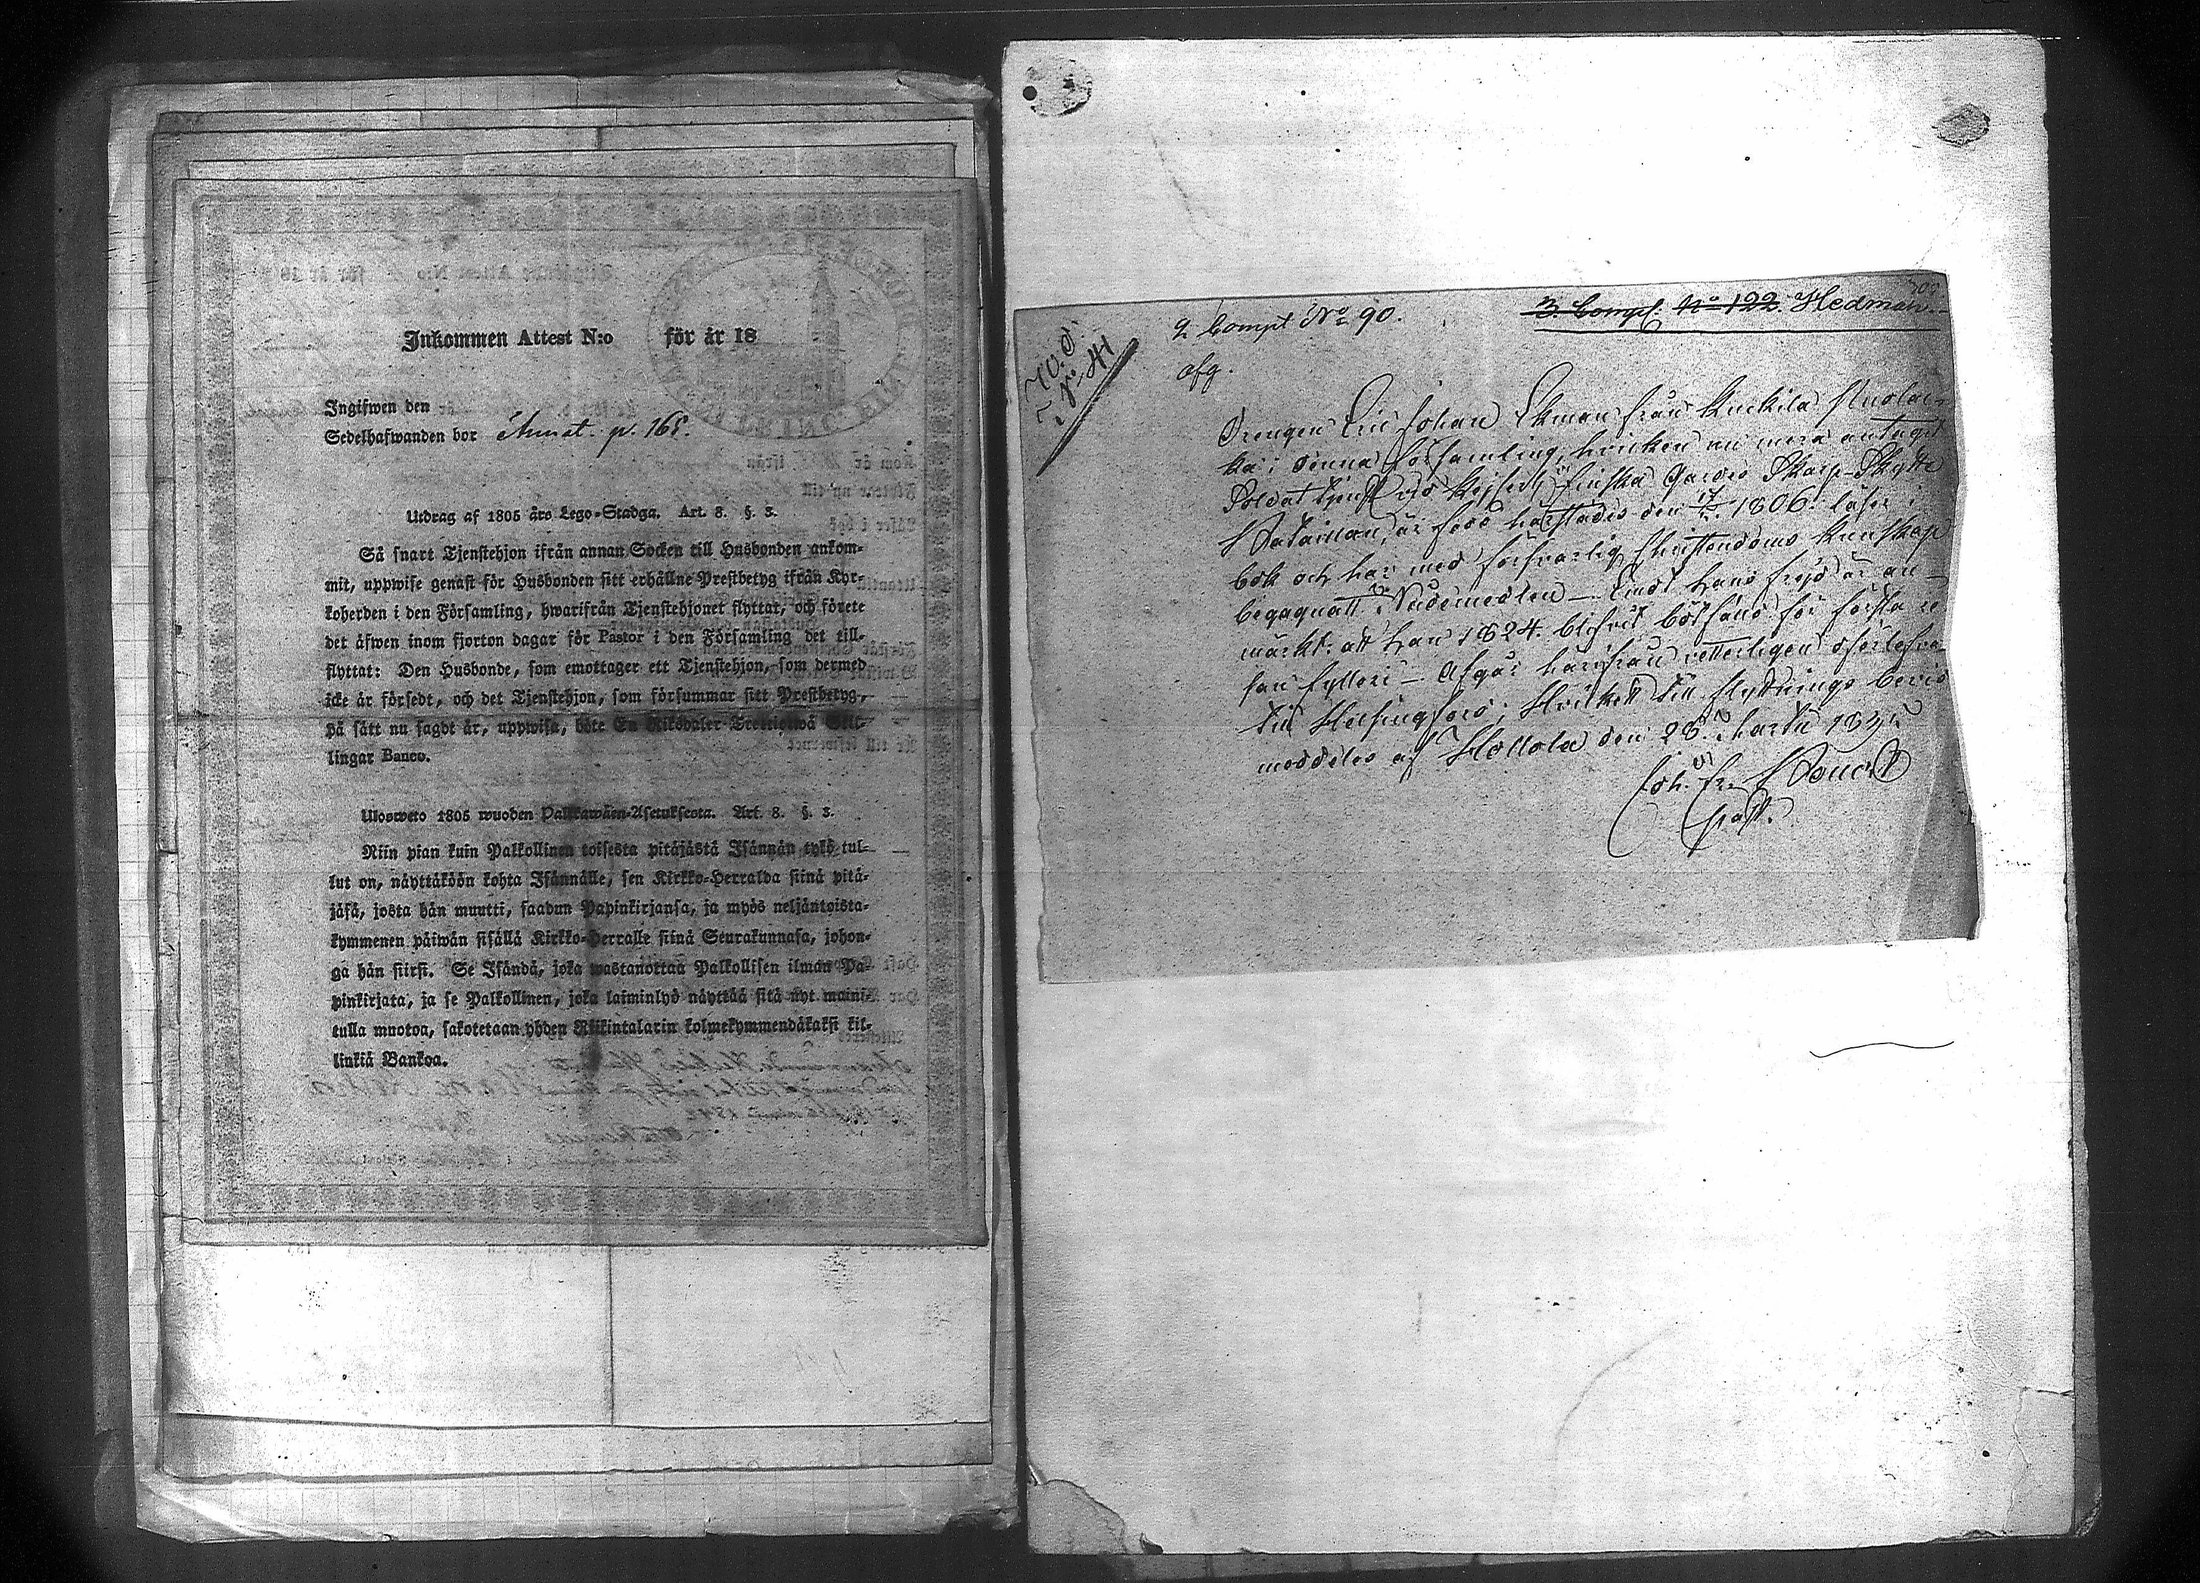 Inkommen Attest N:o för år 18
Ingifwen den
Sedelhafwanden bor Annot. p. 165.
Utdrag af 1805 års Lego-Stadga. Art. 8. §. 3.
Så snart Tjenstehjon ifrån annan Socken till Husbonden ankom-
mit, uppwise genast för Husbonden sitt erhållne Prestbetyg ifrån Kyr-
koherden i den Församling, hwarifrån Tjenstehjonet flyttat, och förete
det äfwen inom fjorton dagar för Pastor i den Församling det till-
flyttat: Den Husbonde, som emottager ett Tjenstehjon, som dermed
icke är försedt, och det Tjenstehjon, som försummar sitt Prestbetyg,
på sätt nu sagdt är, uppwisa, böte En Riksdaler Trettiotwå Skil-
lingar Banco.
Ulosweto 1805 wuoden Palkkawäen-Asetuksesta. Art. 8. §. 3.
Niin pian kuin Palkollinen toisesta pitäjästä Isännän tykö tul-
lut on, näyttäköön kohta Isännälle, sen Kirkko-Herralda siinä pitä-
jäsä, josta hän muutti, saadun Papinkirjansa, ja myös neljäntoista-
kymmenen päiwän sisällä Kirkko-Herralle siinä Seurakunnasa, johon-
ga hän siirsi. Se Isändä, joka wastanottaa Palkollisen ilman Pa-
pinkirjata, ja se Palkollinen, joka laiminlyö näyttää sitä nyt maini-
tulla muotoa, sakotetaan yhden Riikintalarin kolmekymmendäkaksi kil-
linkiä Bankoa.
3. Comp. No 122. Hedman.
2 Compt No 90.
No 41
afg.
Drengen Eric Johan Ekman från Kuckila
ka i denna Församling, hvicken nu mera antagit
Soldat tjenst vid Kejserl. Finska Gardes Skarp-Skytte
Bataillon, är född härstädes den 1806. läser i
bok och har med försvarlig Christendoms kunskap
begagnatt Nådemedlen — Emot hans frejd är an-
märkt: att han 1824. blifvit bötfäld för första
fylleri — Afgår härifrån
till Helsingfors; Hvilkett till flyttnings bevis
meddeles af Hollola den 28. Martii
Joh. Fr.
Past.